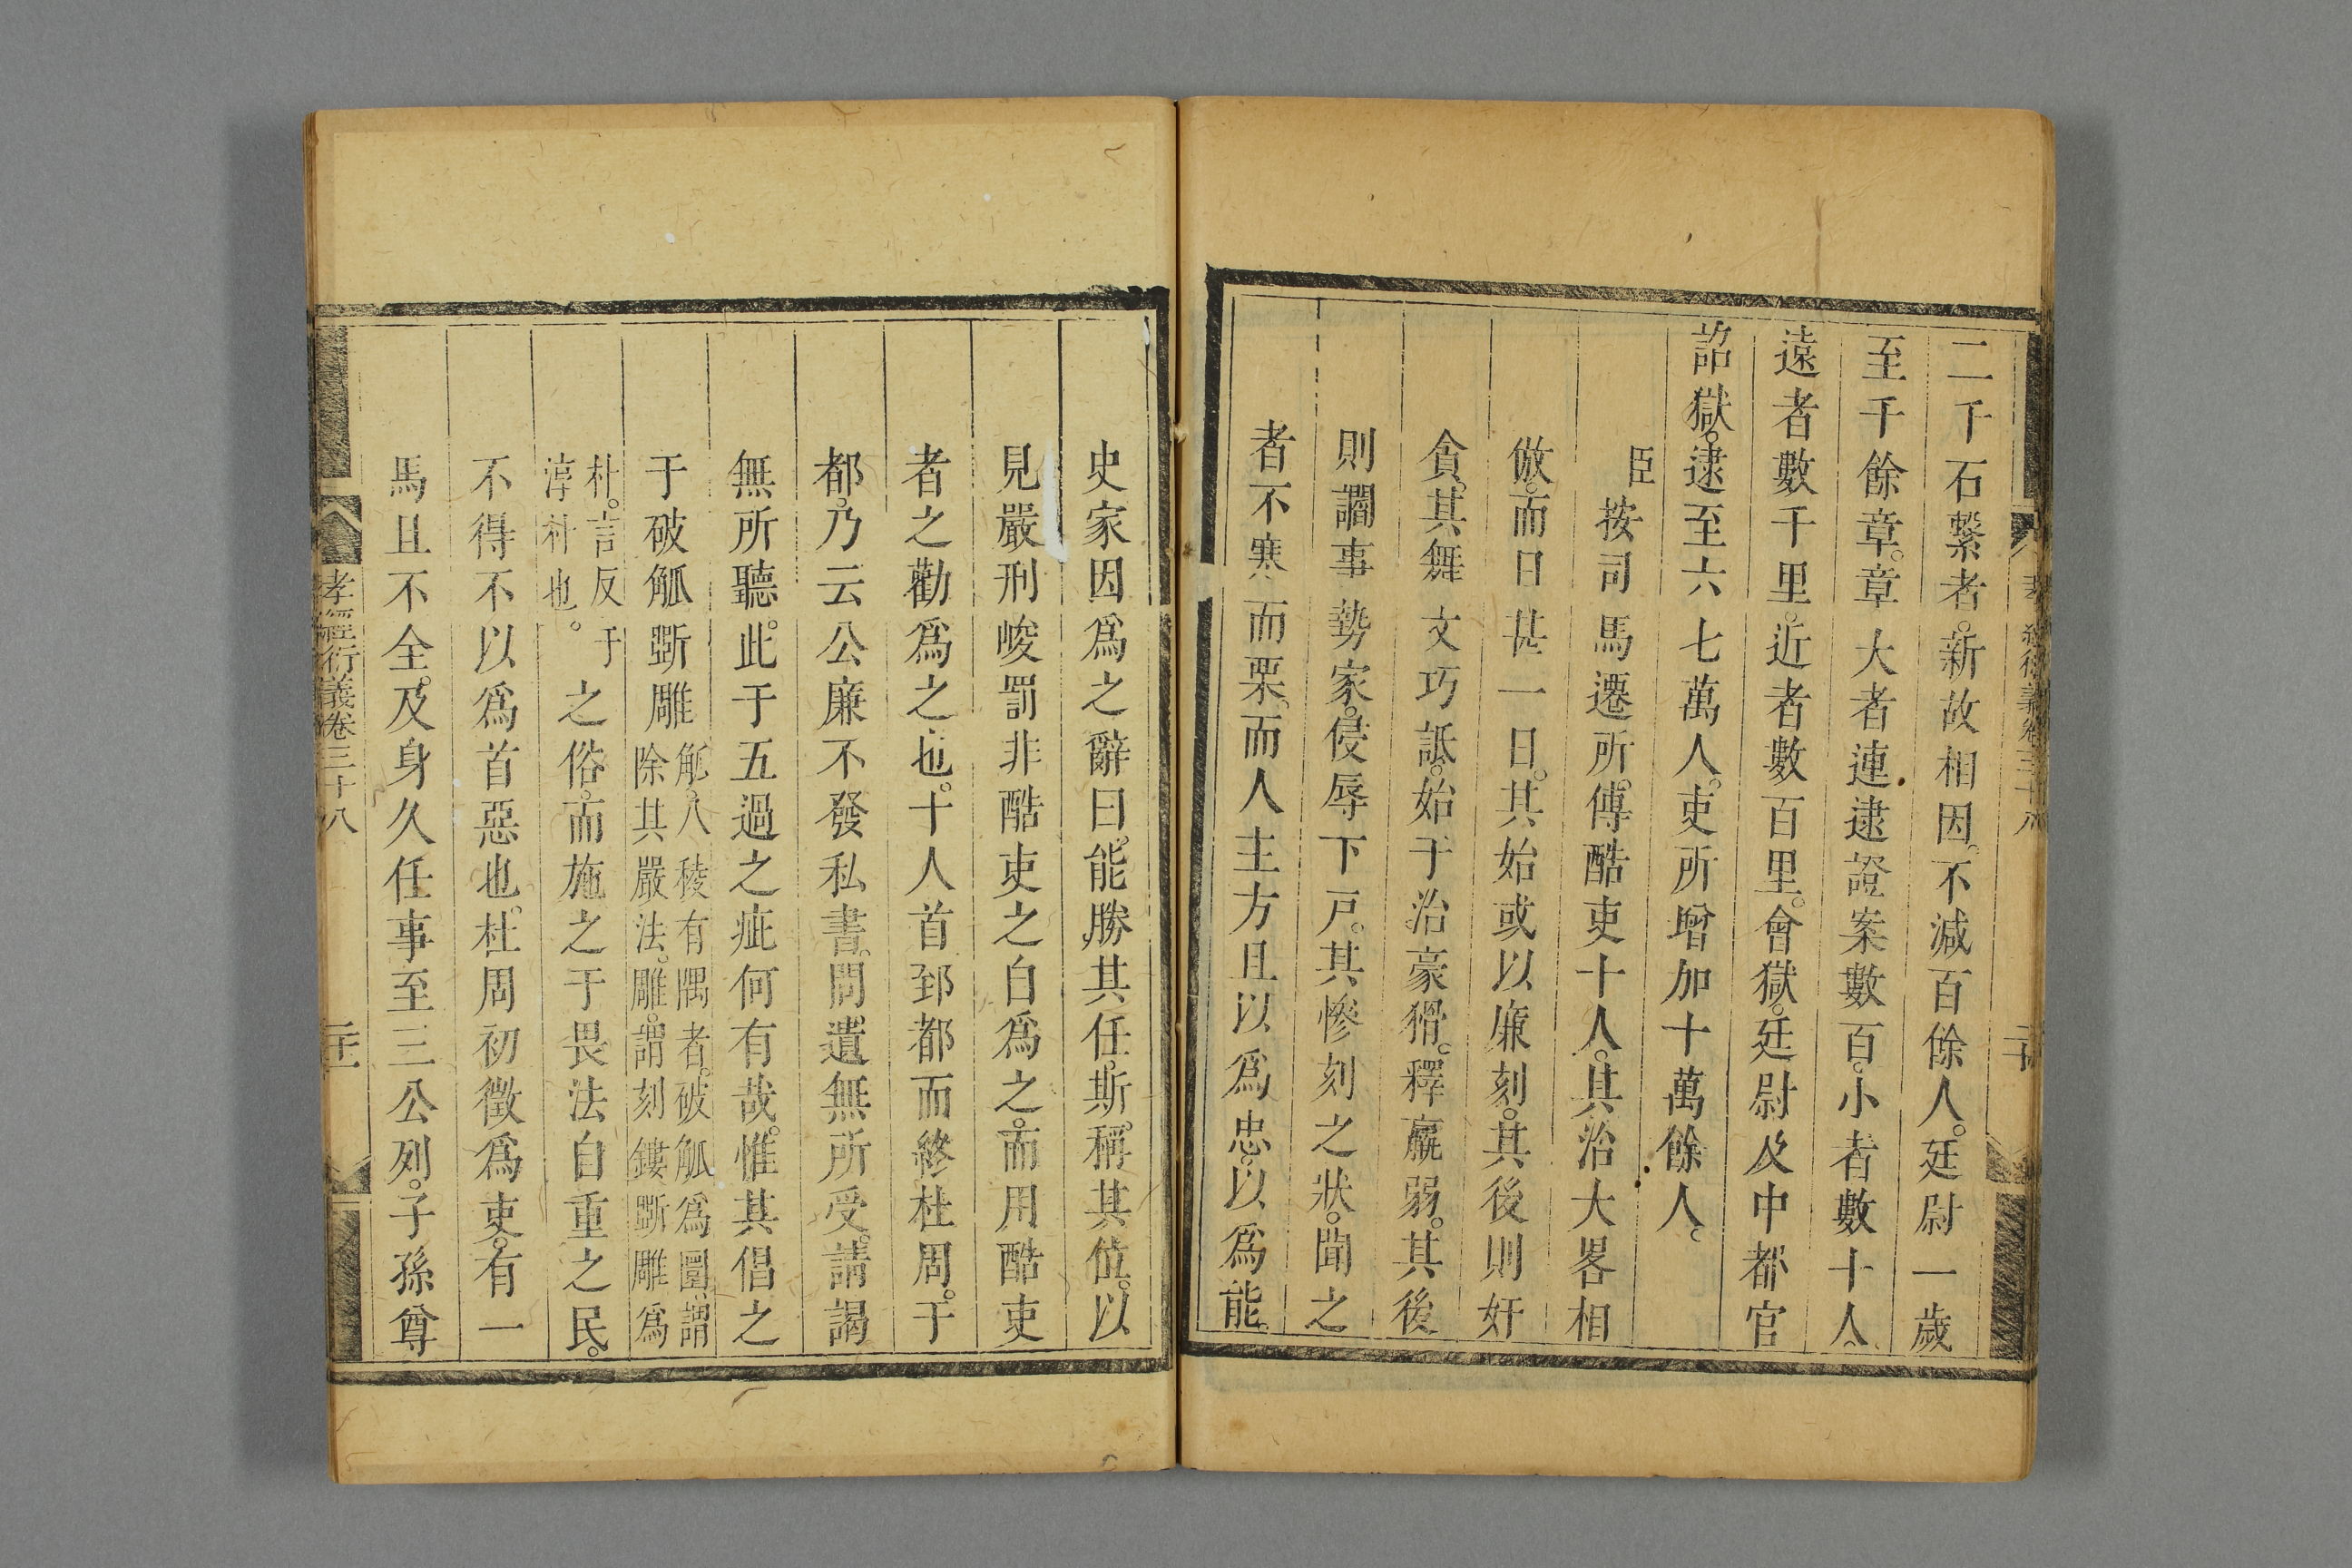 二千石繫者。新故相因。不減百餘人。廷尉一歲
至千餘章。章大者連逮證案數百。小者數十人。
遠者數千里。近者數百里。會獄。廷尉及中都官
詔獄。逮至六七萬人。吏所增加十萬餘人。
臣按司馬遷所。傳酷吏十人。其治大畧相
倣。而日甚一日。其始或以廉刻。其後則奸
貪。其舞文巧詆。始于治豪猾。釋羸弱。其後
則讇事勢家。侵辱下戸。其慘刻之狀。聞之
者不寒而栗。而人主方且以爲忠。以爲能。
史家因爲之辭曰。能勝其任。斯稱其位。以
見嚴刑峻罰非酷吏之自爲之。而用酷吏
者之勸爲之也。十人首郅都而終杜周。于
都。乃云公廉不發私書。問遺無所受。請謁
無所聽。此于五過之疵何有哉。惟其倡之
于破觚斲雕觚。八稜有隅者。破觚爲圜。謂
除其嚴法。雕。謂刻鏤斲雕爲
朴。言反于
淳朴也。之俗。而施之于畏法自重之民。
不得不以爲首惡也。杜周初徵爲吏。有一
馬且不全。及身久任事至三公列。子孫尊
孝經衍義卷三十八